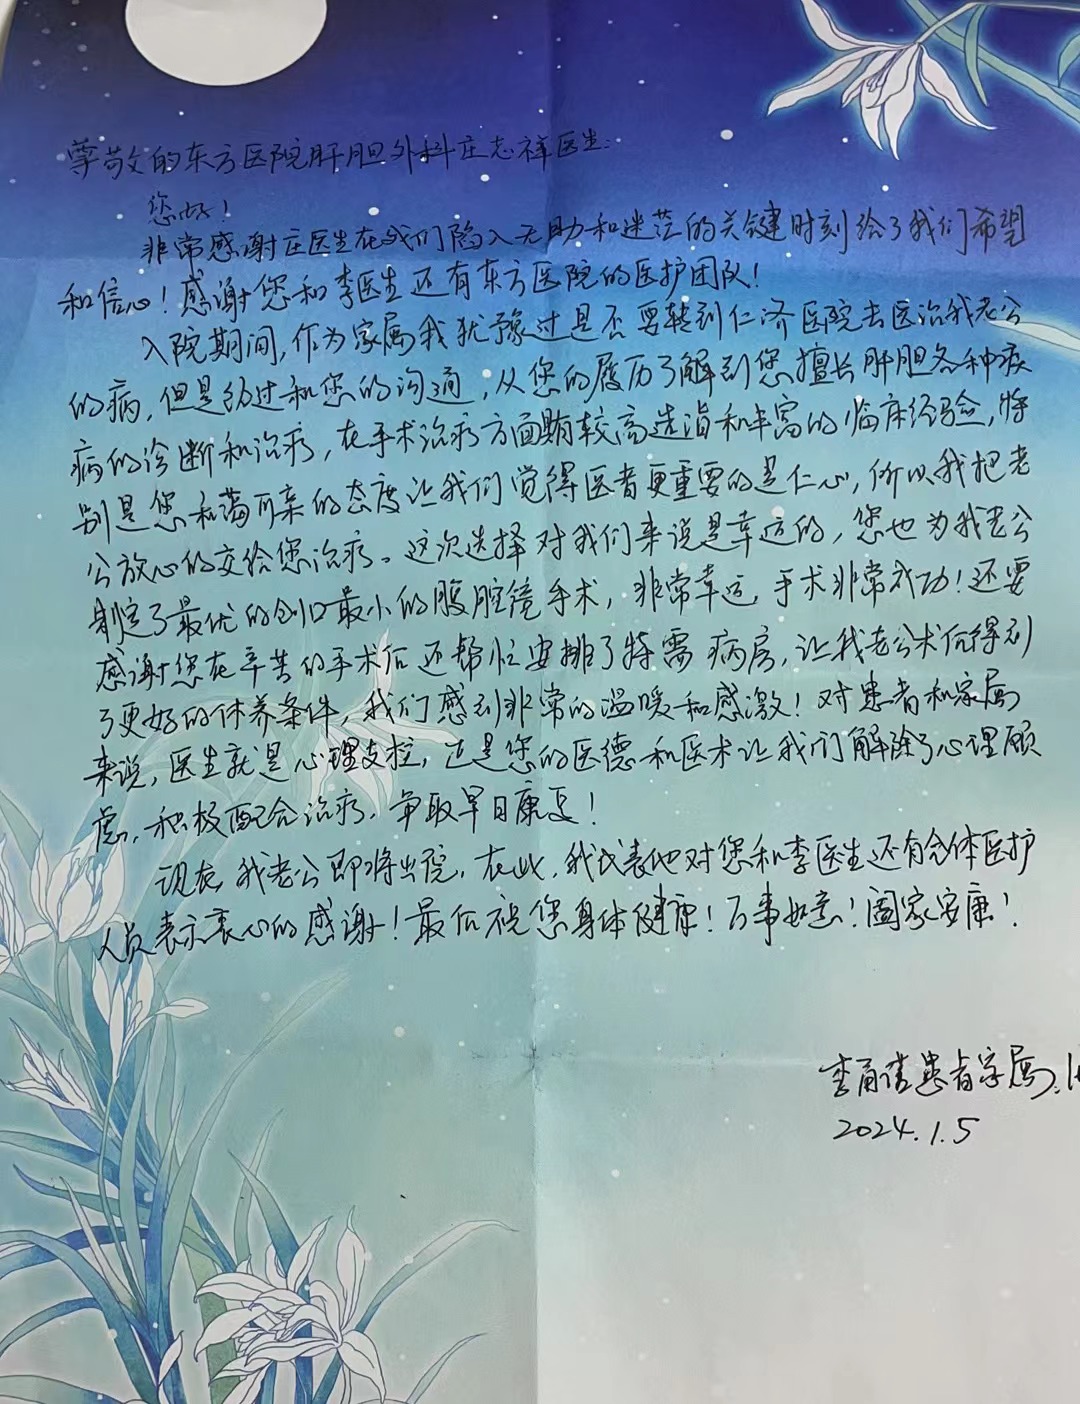 尊敬的东方医院肝胆外科庄志祥医生:
您好!
非常感谢庄医生在我们陷入无助和迷茫的关键时刻给了我们希望
和信心!感谢您和李医生还有东方医院的医护团队!
入院期间,作为家属我犹豫过是否要转到仁济医院去医治我老公
的病,但是经过和您的沟通,从您的履历了解到您擅长肝胆各种疾
病的诊断和治疗,在手术治疗方面有较高造诣和丰富的临床经验,特
别是您和蔼可亲的态度让我们觉得医者更重要的是仁心,所以我把老
公放心的交给您治疗。这次选择对我们来说是幸运的,您也为我老公
制定了最优的创口最小的腹腔镜手术,非常幸运,手术非常成功!还要
感谢您在辛苦的手术后还帮忙安排了特需病房,让我老公术后得到
了更好的休养条件,我们感到非常的温暖和感激!对患者和家属
来说,医生就是心理支柱,正是您的医德和医术让我们解除了心理顾
虑,积极配合治疗,争取早日康复!
现在,我老公即将出院,在此,我代表他对您和李医生还有全体医护
人员表示衷心的感谢!最后祝您身体健康!万事如意!阖家安康!
患者家属:
2024.1.5